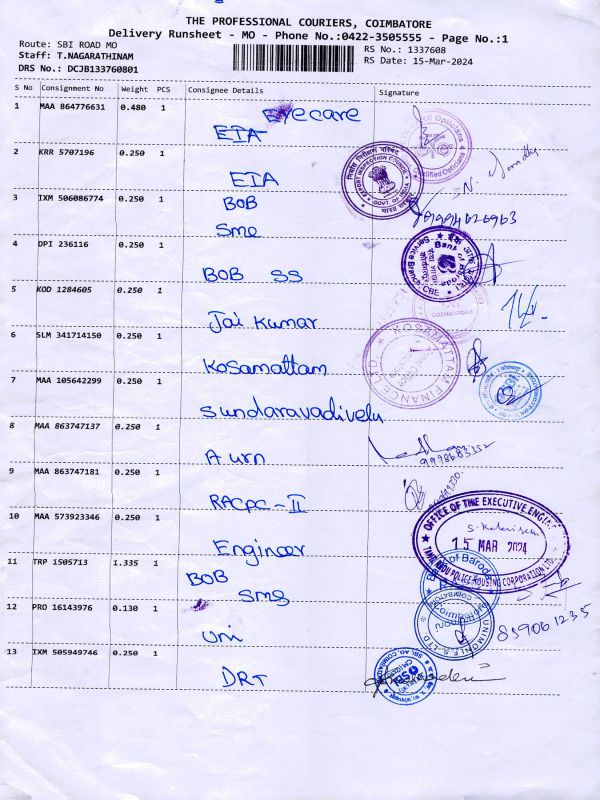 THE PROFESSIONAL COURIERS, COIMBATORE
Delivery Runsheet - MO - Phone No.:0422-3505555 - Page No.:1
Route: SBI ROAD MO
Staff: T.NAGARATHINAM
DRS No.: DCJB133760801
RS No.: 1337608
RS Date: 15-Mar-2024
S No Consignment No Weight PCS Consignee Details Signature
1 MAA 864776631 0.480 1 Eyecare
EIA
2 KRR 5707196 0.250 1
EIA
3 IXM 506086774 0.250 1 BOB
Sme
4 DPI 236116 0.250 1
BOB SS
5 KOD 1284605 0.250 1
Jai Kumar
6 SLM 341714150 0.250 1
Kosamattam
7 MAA 105642299 0.250 1
Sundaravadivelu
8 MAA 863747137 0.250 1
A urn
9 MAA 863747181 0.250 1
RACPC - II
10 MAA 573923346 0.250 1
Engineer
11 TRP 1505713 1.335 1 BOB
Sms
12 PRO 16143976 0.130 1
Uni
13 IXM 505949746 0.250 1
DRT
EXPORT INSPECTION COUNCIL
GOVT. OF INDIA
Service Branch - CBE
KOSAMATTAM FINANCE LTD
OFFICE OF THE EXECUTIVE ENGINEER
15 MAR 2024
TAMIL NADU POLICE HOUSING CORPORATION LTD
Bank of Baroda
859061235